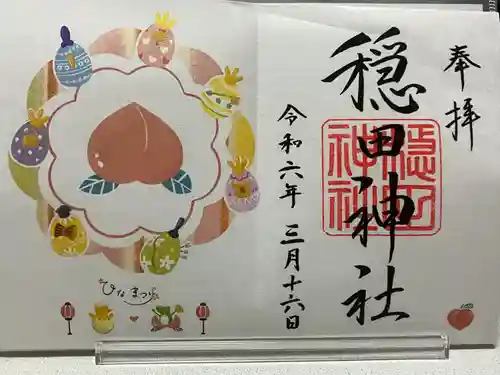 奉拝
穏田神社
穏田神社
令和六年 三月十六日
ひなまつり